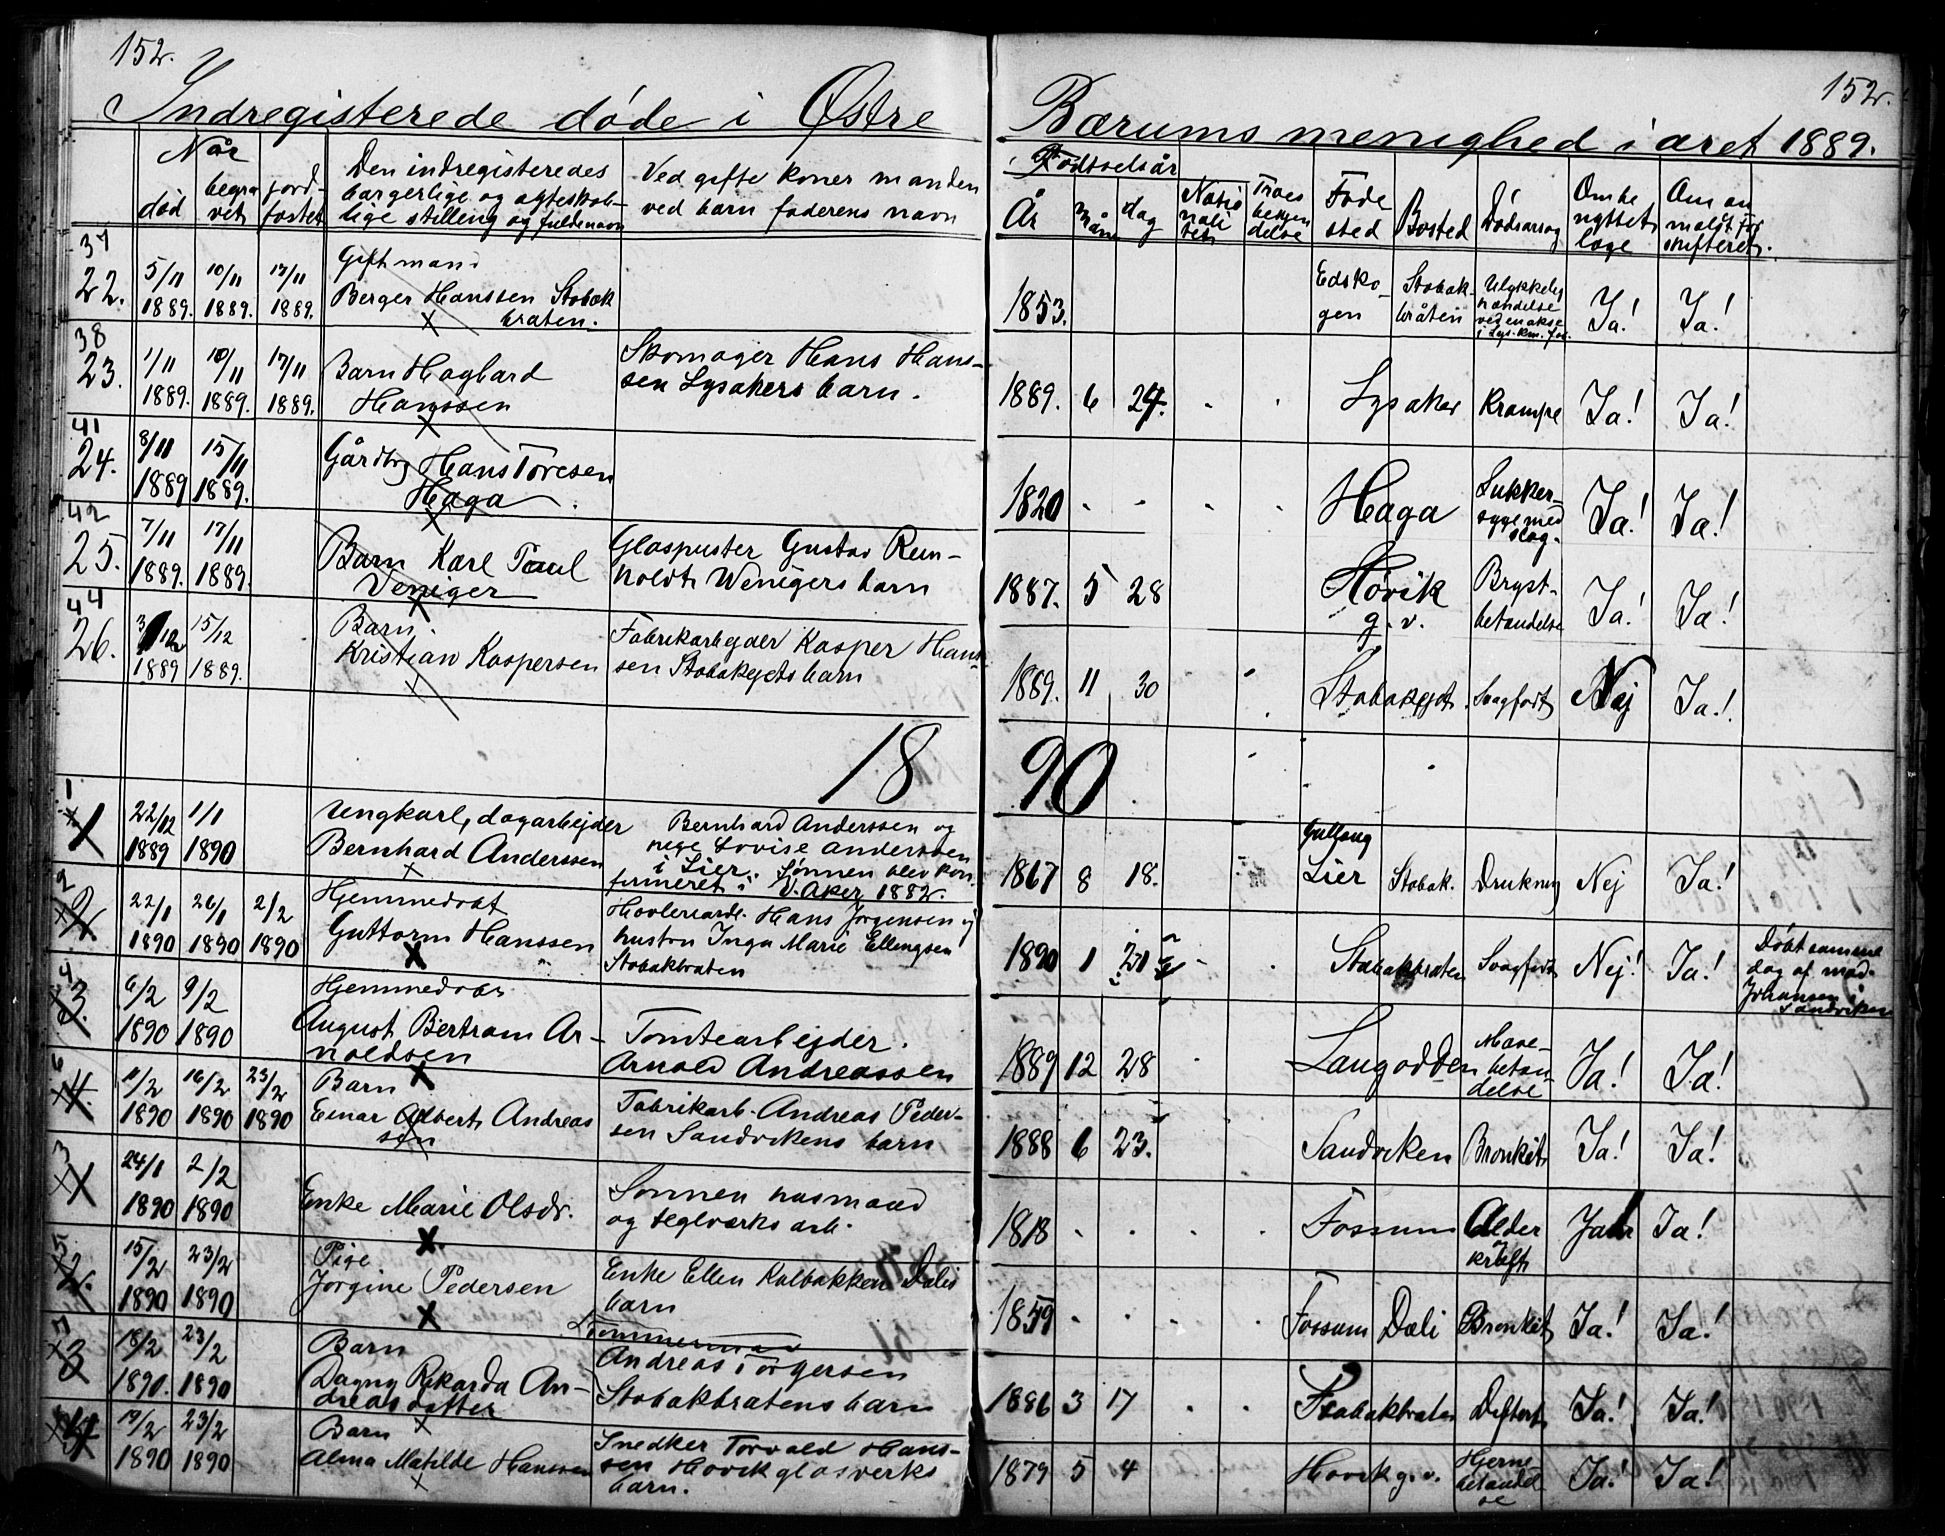 152.
152.
Indregisterede døde i Østre Bærums menighed i året 1889.
Når
død
begra
vet
jord-
fæstet
Den indregisteredes
borgerlige og ægteskab-
lige stilling og fulde navn
Ved gifte koner manden
ved barn faderens navn
Fødselsår
År
Mån
dag
Natio
nali
tet
Troes
bekjen
delse
Føde
sted
Bosted
Dødsårsag
Om be
nyttet
læge
Om an
mældt for
skifteret.
37
22.
5/11
1889.
10/11
1889.
17/11
1889.
Gift mand
Berger Hanssen Stabæk
bråten.
1853.
Edsko-
gen
Stabæk-
bråten
Ulykkelig
hændelse
ved en akse
Ja!
Ja!
38
23.
1/11
1889.
10/11
1889.
17/11
1889.
Barn Hagbard
Hanssen
Skomager Hans Hans-
sen Lysakers barn.
1889. 6 24.
Lysaker
Krampe
Ja!
Ja!
41
24.
8/11
1889
15/11
1889.
Gårdbr Hans Toresen
Haga
1820
Haga
Sukker-
syge med
slag.
Ja!
Ja!
42
25.
7/11
1889.
17/11
1889.
Barn Karl Paul
Veniger
Glaspuster Gustav Rein-
holdt Wenigers barn
1887. 5 28
Høvik
g. v.
Bryst-
betændelse
Ja!
Ja!
44
26.
3/12
1889
15/12
1889.
Barn.
Kristian Kaspersen
Fabrikarbejder Kasper Hans-
sen Stabækejets barn
1889. 11 30
Stabækejet.
Svagfødt
Nej
Ja!
1890
1
1
22/12
1889
1/1
1890
Ungkarl, dagarbejder
Bernhard Anderssen
Bernhard Anderssen og
Lovise Anderssen
i Lier. Sønnen blev kon
firmeret i V. Aker 1882.
1867 8 18.
Gullaug
Lier
Stabæk.
Drukning
Nej
Ja!
2
2
22/1
1890
26/1
1890
2/2
1890
Hjemmedøbt
Guttorm Hanssen
Høvleriarb. Hans Jørgensen og
hustru Inga Marie Ellingsen
Stabækbråten
1890 1 21
Stabækbråten
Svagfødt
Nej!
Ja!
Døbt samme
dag af mad.
Johansen i
Sandviken
4
3.
6/2
1890
9/2
1890
Hjemmedøbt
August Bertram Ar-
noldsen
Tomtearbejder.
Arnold Andreassen
1889 12 28
Langodden
Mave-
betæn-
delse
Ja!
Ja!
6
4.
11/2
1890
16/2
1890
23/2
1890
Barn
Einar Albert Andreas
sen
Fabrikarb. Andreas Peder-
sen Sandvikens barn
1888 6 23.
Sandviken
Bronkit
Ja!
Ja!
3
1
24/1
1890
2/2
1890
Enke Marie Olsdr.
Sønnen husmand
og teglværks arb.
1818
Fossum
Alder
kræft
Ja!
Ja!
5
2.
15/2
1890
23/2
1890
Pige
Jørgine Pedersen
Enke Ellen Kalbakken Dæli
barn
1859
Fossum
Dæli
Bronkit
Ja!
Ja!
7
3
18/2
1890.
23/2
1890
Barn
Dagny Rikarda An-
dreasdatter
Tømmermand
Andreas Torgersen
Stabækbråtens barn
1886 3 17
Stabækbråten
Difterit
Ja!
Ja!
4
19/2
1890
23/2
1890
Barn
Alma Matilde Hanssen
Snedker Torvald Hans-
sen Høvik glasverks
barn.
1879 5 4
Høvik g. v.
Hjerne
betændel
se
Ja!
Ja!